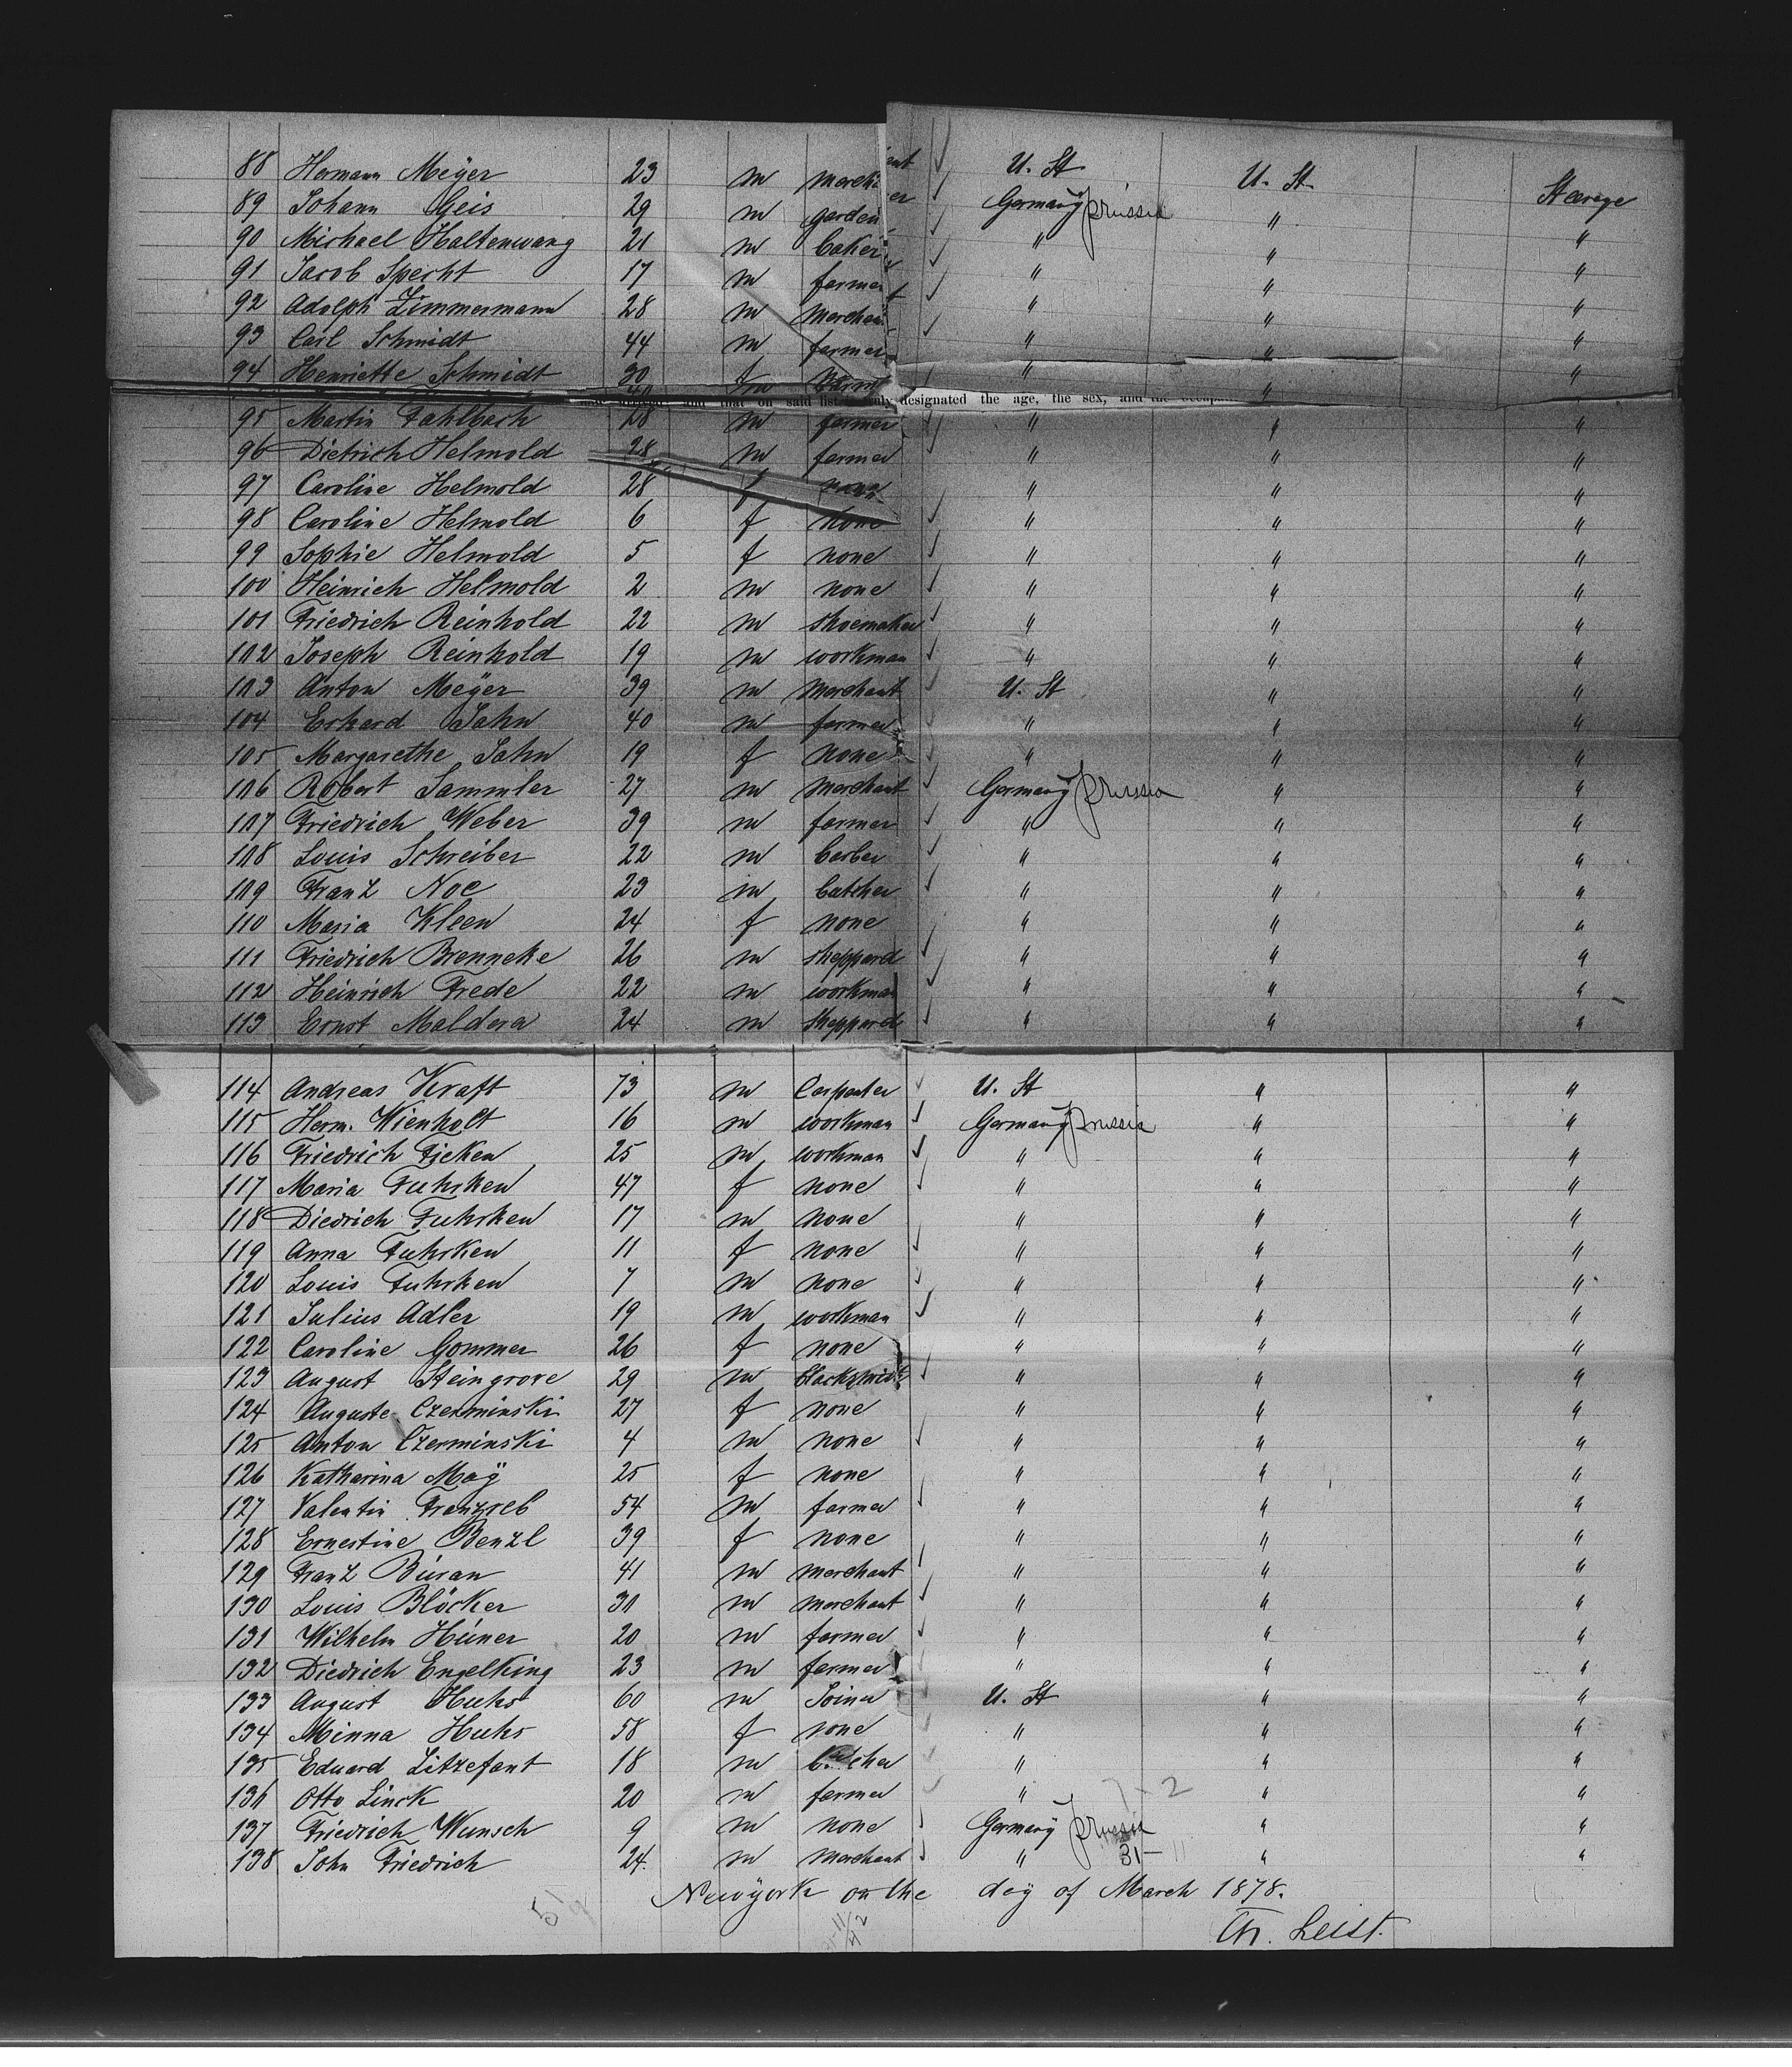 88 Hermann Meÿer 23 m merch ant U. St U. St Steerage
89 Johann Geis 29 m garden er Germanÿ Prussia " "
90 Michael Haltenwang 21 m baker " " "
91 Jacob Specht 17 m farmer " " "
92 Adolph Zimmermann 28 m merchan t " " "
93 Carl Schmidt 44 m farmer " " "
94 Henriette Schmidt 30 f " " "
and that on said list is truly designated the age, the sex, and the occupa
95 Martin Fahlbach 28 m farmer " " "
96 Dietrich Helmold 28 m farmer " " "
97 Caroline Helmold 28 f none " " "
98 Caroline Helmold 6 f none " " "
99 Sophie Helmold 5 f none " " "
100 Heinrich Helmold 2 m none " " "
101 Friedrich Reinhold 22 m shoemaker " " "
102 Joseph Reinhold 19 m workman " " "
103 Anton Meÿer 39 m merchant U. St " "
104 Erhard Jahn 40 m farmer " " "
105 Margarethe Jahn 19 f none " " "
106 Robert Sammler 27 m merchant Germanÿ Prussia " "
107 Friedrich Weber 39 m farmer " " "
108 Louis Schreiber 22 m barber " " "
109 Franz Noe 23 m butcher " " "
110 Maria Kleen 24 f none " " "
111 Friedrich Brenneke 26 m sheppard " " "
112 Heinrich Frede 22 m workman " " "
113 Ernst Maldera 24 m sheppard " " "
114 Andreas Kraft 73 m Carpenter U. St " "
115 Herm. Wienholt 16 m workman Germanÿ Prussia " "
116 Friedrich Ficken 25 m workman " " "
117 Maria Fuhrken 47 f none " " "
118 Diedrich Fuhrken 17 m none " " "
119 Anna Fuhrken 11 f none " " "
120 Louis Fuhrken 7 m none " " "
121 Julius Adler 19 m workman " " "
122 Caroline Gommer 26 f none " " "
123 August Steingrove 29 m blacksmith " " "
124 Auguste Czerminski 27 f none " " "
125 Anton Czerminski 4 m none " " "
126 Katharina Maÿ 25 f none " " "
127 Valentin Franzreb 54 m farmer " " "
128 Ernestine Benzl 39 f none " " "
129 Franz Buran 41 m merchant " " "
130 Louis Blöcker 30 m merchant " " "
131 Wilhelm Hüner 20 m farmer " " "
132 Diedrich Engelking 23 m farmer " " "
133 August Huhs 60 m Joiner U. St " "
134 Minna Huhs 58 f none " " "
135 Eduard Litzefant 18 m butcher " " "
136 Otto Linck 20 m farmer " " "
7-2
137 Friedrich Wunsch 9 m none Germanÿ Prussia " "
138 John Friedrich 24. m merchant " " "
31-
Newÿork on the day of March 1878.
Th. Leist.